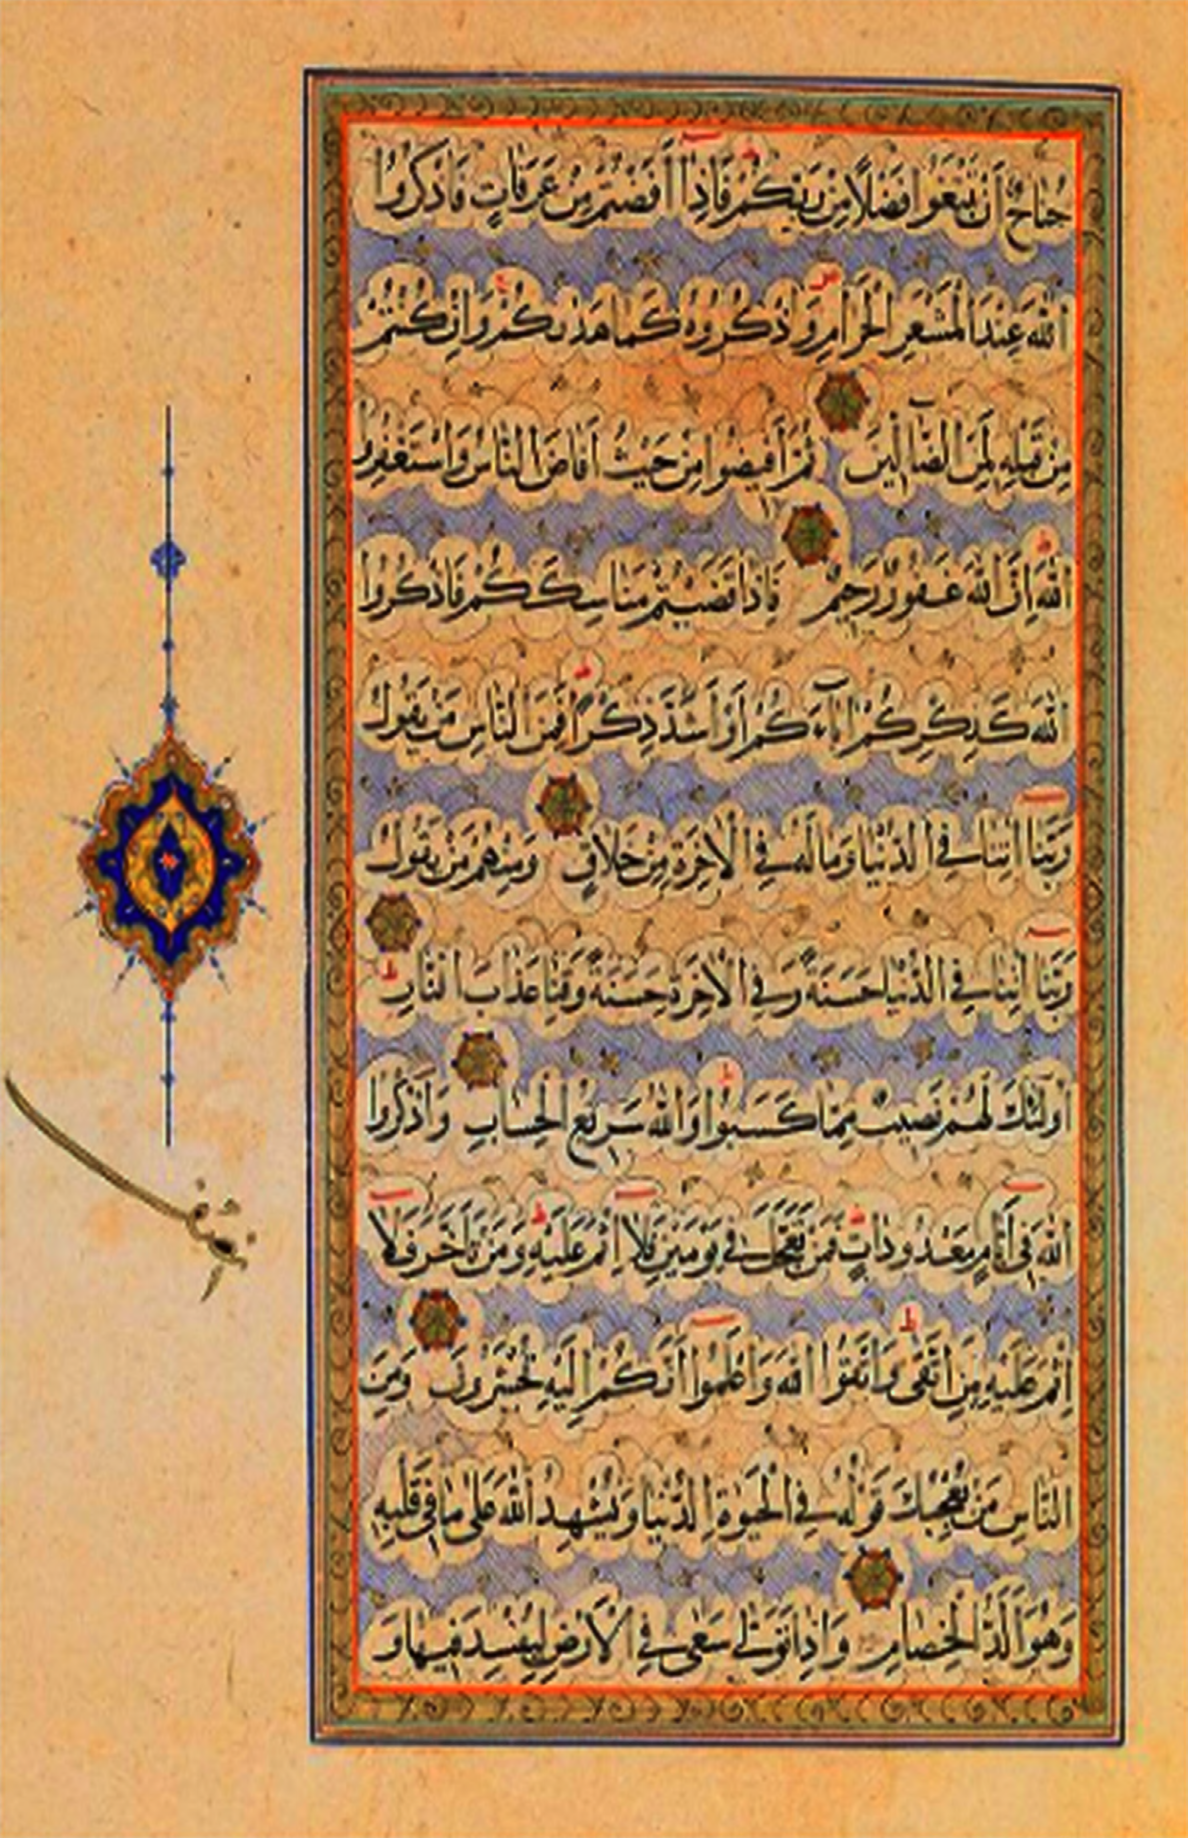 جُنَاحٌ أَنْ تَبْتَغُوا فَضْلًا مِنْ رَبِّكُمْ فَاِذَا أَفَضْتُمْ مِنْ عَرَفَاتٍ فَاذْكُرُوا
اللهَ عِنْدَ الْمَشْعَرِ الْحَرَامِ وَاذْكُرُوهُ كَمَا هَدٰىكُمْ وَاِنْ كُنْتُمْ
مِنْ قَبْلِهِ لَمِنَ الضَّآلِّينَ ثُمَّ أَفِيضُوا مِنْ حَيْثُ أَفَاضَ النَّاسُ وَاسْتَغْفِرُوا
اللهَ اِنَّ اللهَ غَفُورٌ رَحِيمٌ فَاِذَا قَضَيْتُمْ مَنَاسِكَكُمْ فَاذْكُرُوا
اللهَ كَذِكْرِكُمْ اٰبَآءَكُمْ أَوْ أَشَدَّ ذِكْرًا فَمِنَ النَّاسِ مَنْ يَقُولُ
رَبَّنَا اٰتِنَا فِي الدُّنْيَا وَمَا لَهُ فِي الْاٰخِرَةِ مِنْ خَلَاقٍ وَمِنْهُمْ مَنْ يَقُولُ
رَبَّنَا اٰتِنَا فِي الدُّنْيَا حَسَنَةً وَفِي الْاٰخِرَةِ حَسَنَةً وَقِنَا عَذَابَ النَّارِ
اُولٰئِكَ لَهُمْ نَصِيبٌ مِمَّا كَسَبُوا وَاللهُ سَرِيعُ الْحِسَابِ وَاذْكُرُوا
اللهَ فِي أَيَّامٍ مَعْدُودَاتٍ فَمَنْ تَعَجَّلَ فِي يَوْمَيْنِ فَلَا اِثْمَ عَلَيْهِ وَمَنْ تَأَخَّرَ فَلَا
اِثْمَ عَلَيْهِ لِمَنِ اتَّقٰى وَاتَّقُوا اللهَ وَاعْلَمُوا أَنَّكُمْ اِلَيْهِ تُحْشَرُونَ وَمِنَ
النَّاسِ مَنْ يُعْجِبُكَ قَوْلُهُ فِي الْحَيٰوةِ الدُّنْيَا وَيُشْهِدُ اللهَ عَلٰى مَا فِي قَلْبِهِ
وَهُوَ أَلَدُّ الْخِصَامِ وَاِذَا تَوَلّٰى سَعٰى فِي الْأَرْضِ لِيُفْسِدَ فِيهَا وَ